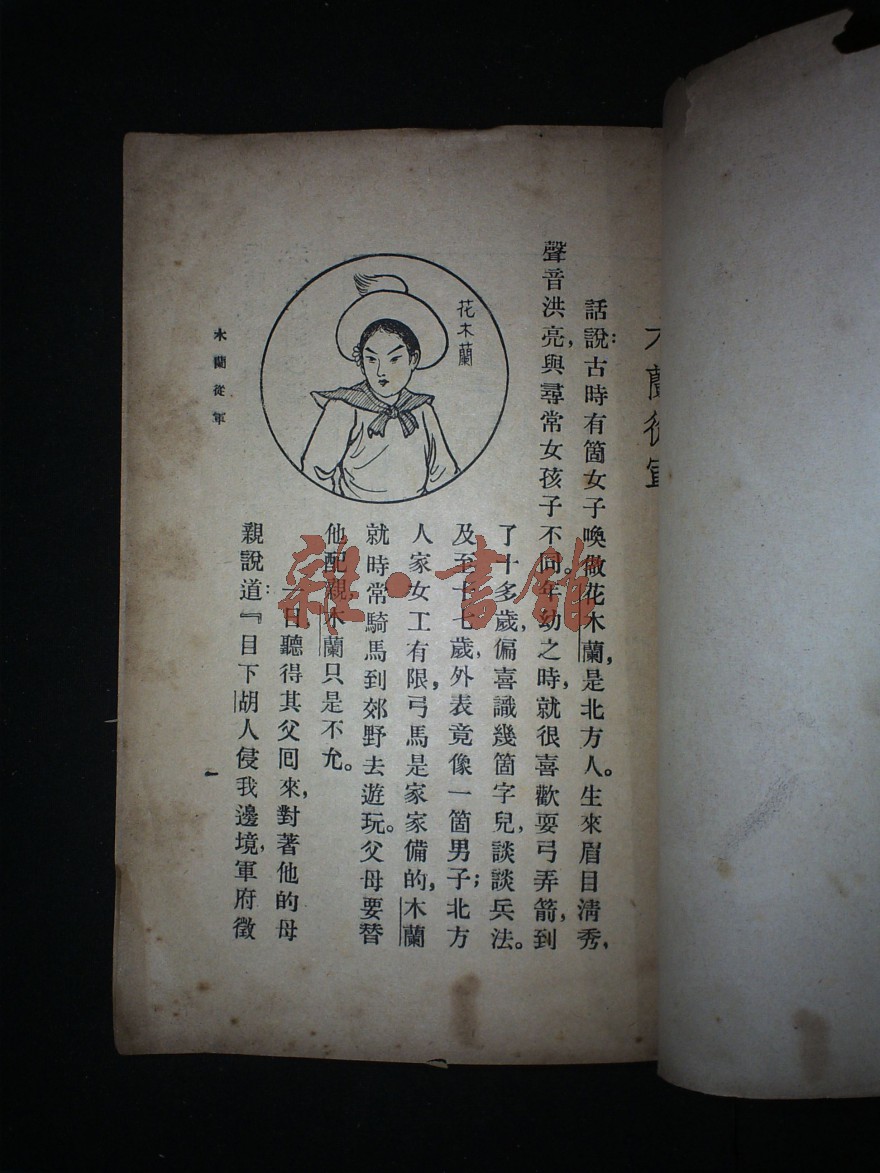 木蘭從軍
話說：古時有箇女子喚做花木蘭，是北方人。生來眉目清秀，
聲音洪亮，與尋常女孩子不同。年幼之時，就很喜歡耍弓弄箭，到
了十多歲，偏喜識幾箇字兒，談談兵法。
及至十七歲，外表竟像一箇男子；北方
人家女工有限，弓馬是家家備的，木蘭
就時常騎馬到郊野去遊玩。父母要替
他配親，木蘭只是不允。
一日聽得其父囘來，對著他的母
親說道：『目下胡人侵我邊境，軍府徵
花木蘭
木蘭從軍
一
雜·書館